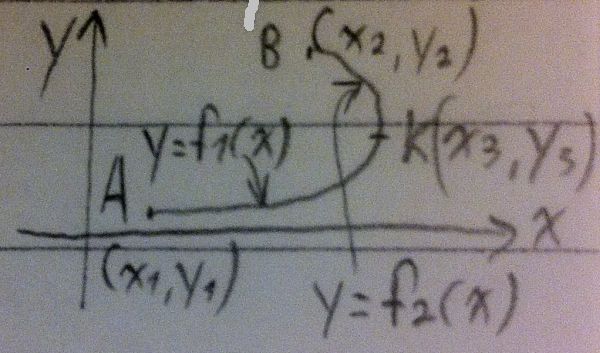 y
B (x2, y2)
y=f1(x)
K(x3, y3)
A
x
(x1, y1)
y=f2(x)